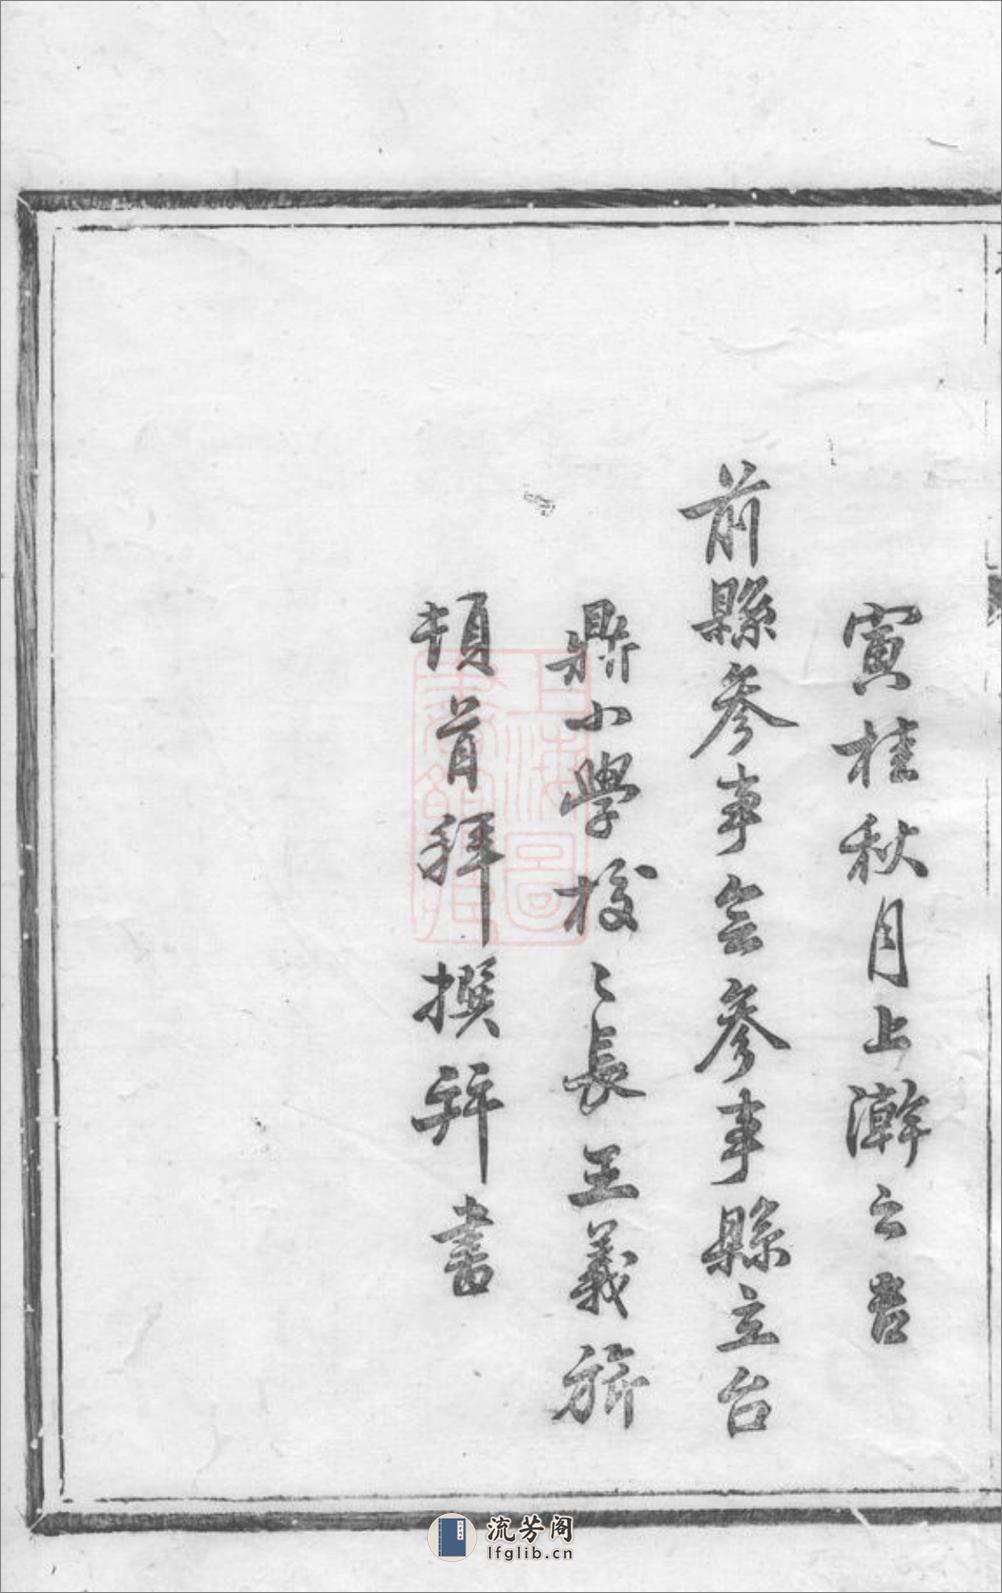 寅桂秋月上澣之吉
前縣參事会參事縣立台
鼎小學校〻長王義旂
頓首拜撰并書
上海圖書館藏
流芳阁
lfglib.cn